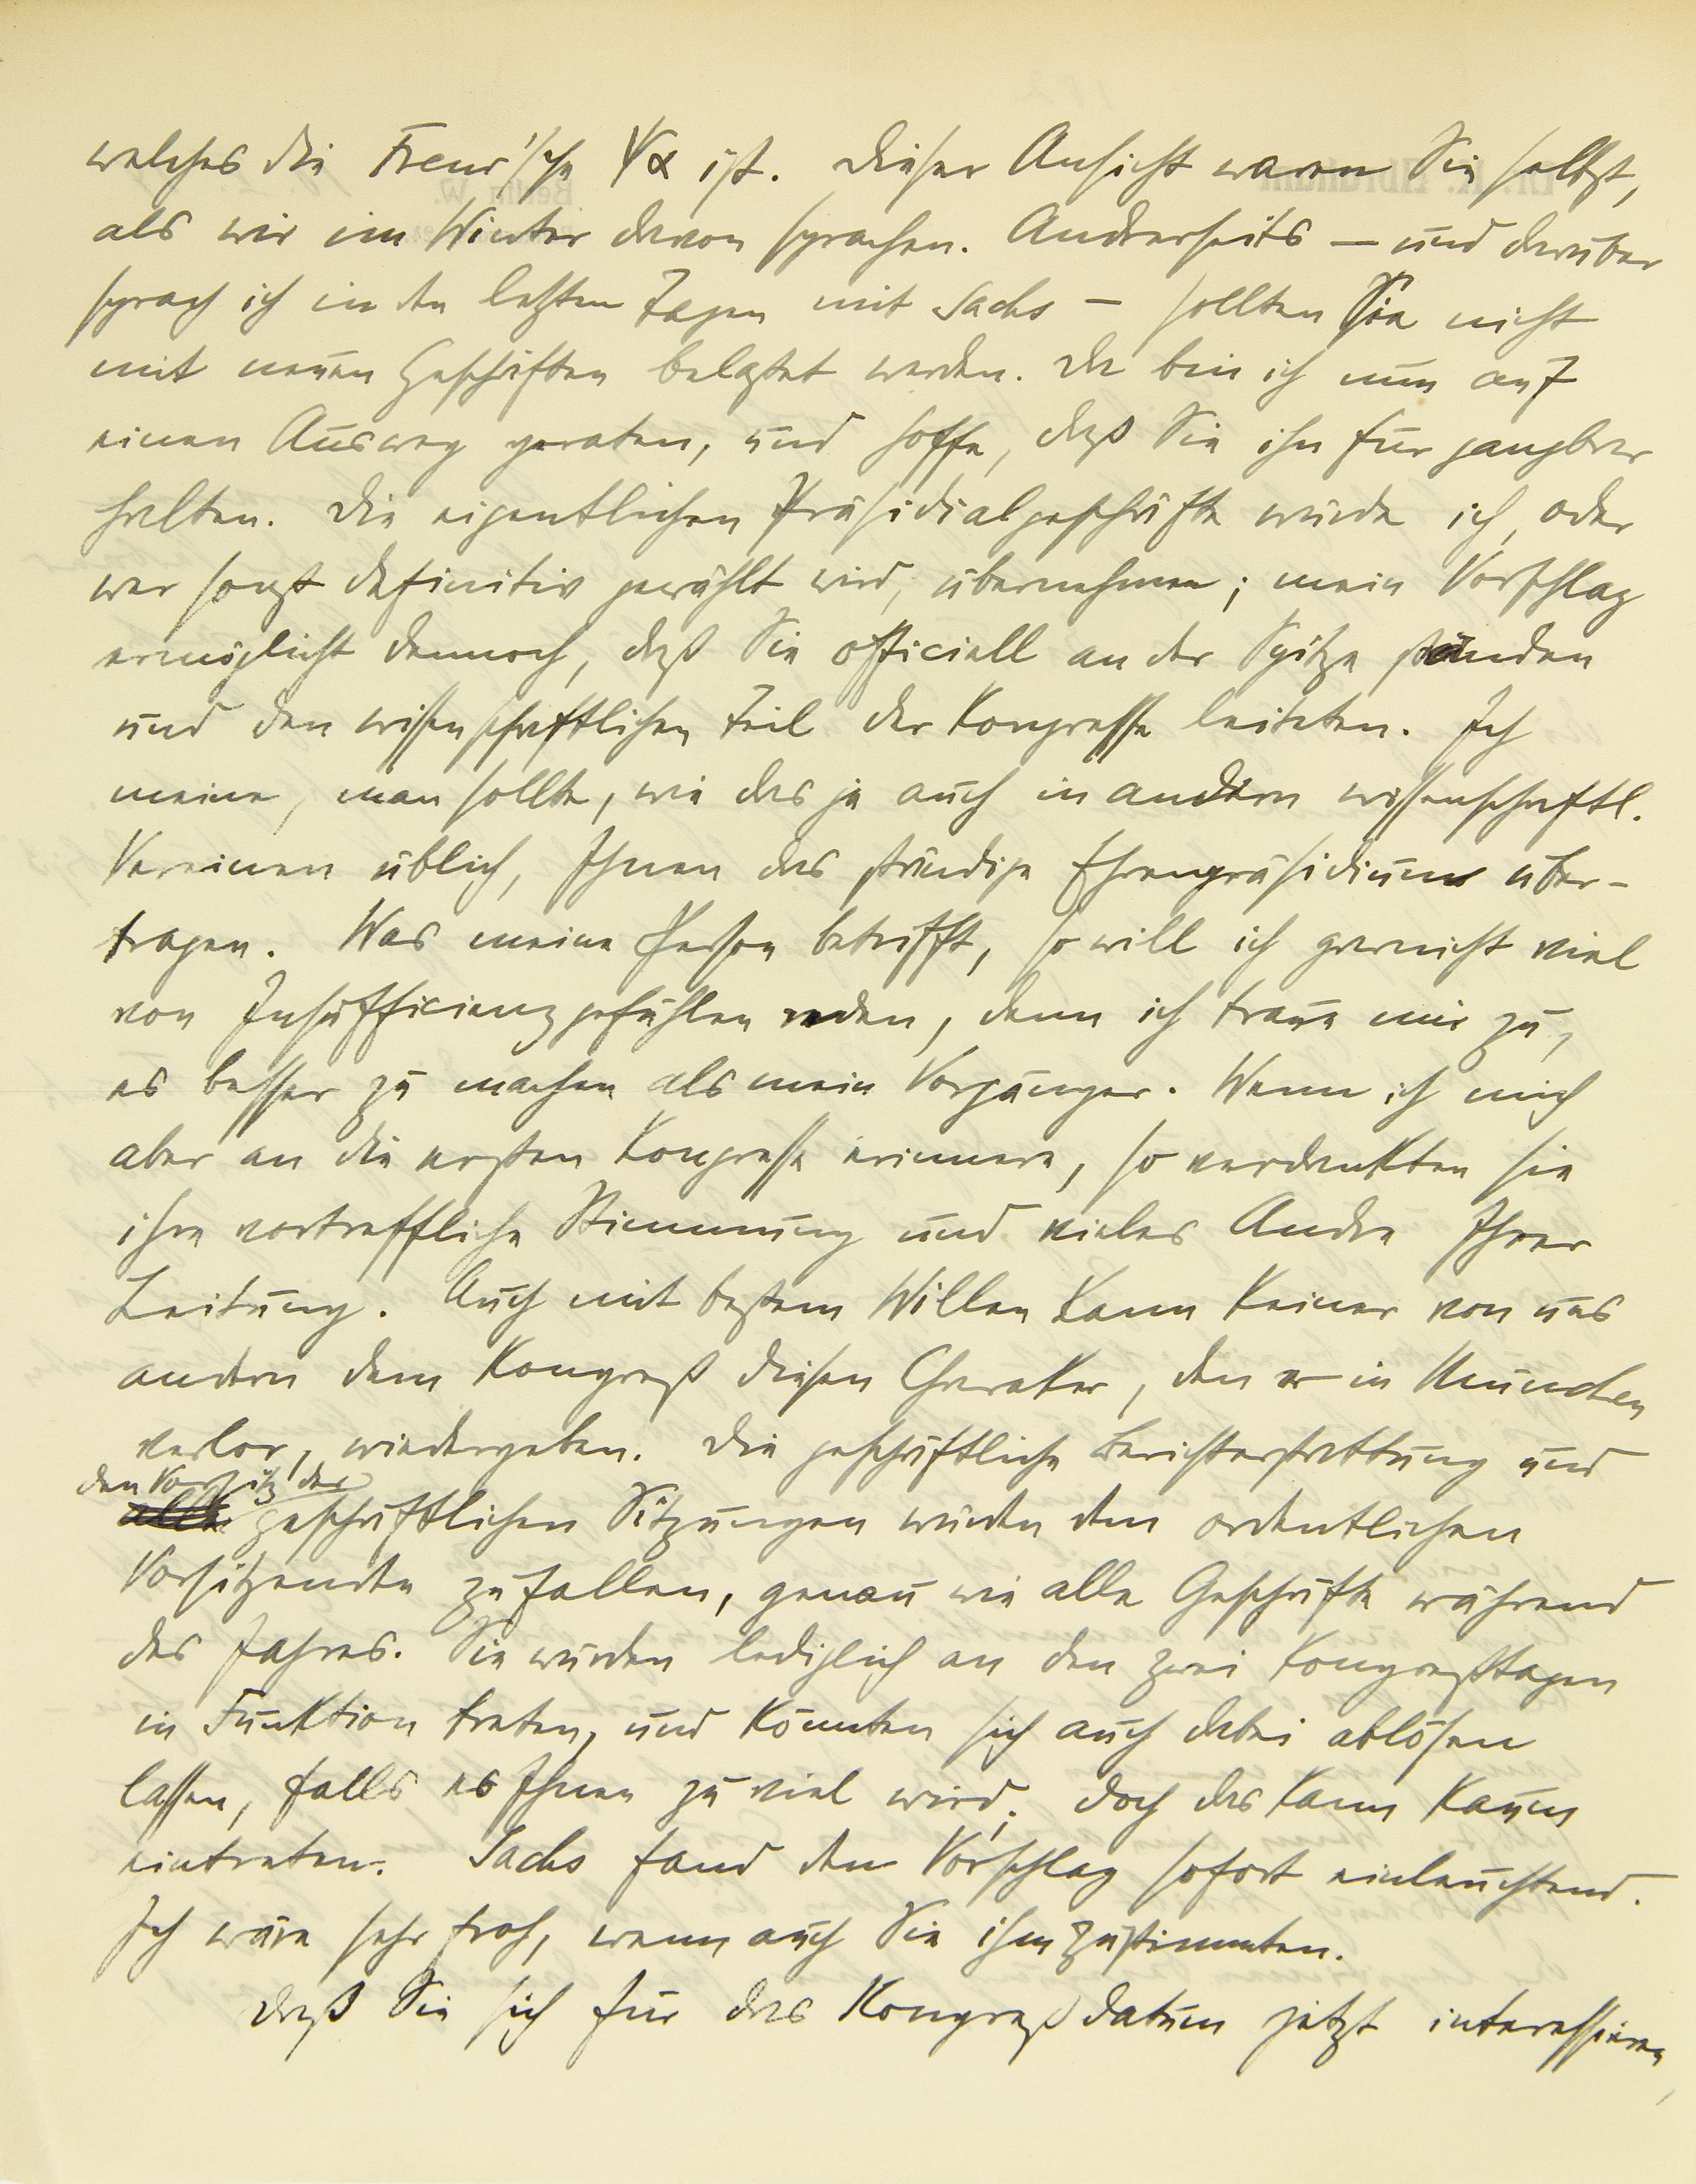 welches die Freud'sche Ψα ist. Dieser Ansicht waren Sie selbst,
als wir im Winter davon sprachen. Anderseits — und darüber
sprach ich in den letzten Tagen mit Sachs — sollten Sie nicht
mit neuen Geschäften belastet werden. Da bin ich nun auf
einen Ausweg geraten, und hoffe, daß Sie ihn für gangbar
halten. Die eigentlichen Präsidialgeschäfte würde ich, oder
wer sonst definitiv gewählt wird, übernehmen; mein Vorschlag
ermöglicht dennoch, daß Sie officiell an der Spitze ständen
und den wissenschaftlichen Teil der Kongresse leiteten. Ich
meine, man sollte, wie das ja auch in andern wissenschaftl.
Vereinen üblich, Ihnen das ständige Ehrenpräsidium über-
tragen. Was meine Person betrifft, so will ich garnicht viel
von Insufficienzgefühlen reden, denn ich traue mir zu,
es besser zu machen als mein Vorgänger. Wenn ich mich
aber an die ersten Kongresse erinnere, so verdankten sie
ihre vortreffliche Stimmung und vieles Andre Ihrer
Leitung. Auch mit bestem Willen kann keiner von uns
andern dem Kongreß diesen Charakter, den er in München
verlor, wiedergeben. Die geschäftliche Berichterstattung und
den Vorsitz der
geschäftlichen Sitzungen würden dem ordentlichen
Vorsitzenden zufallen, genau wie alle Geschäfte während
des Jahres. Sie würden lediglich an den zwei Kongreßtagen
in Funktion treten, und könnten sich auch dabei ablösen
lassen, falls es Ihnen zu viel wird. Doch das kann kaum
eintreten. Sachs fand den Vorschlag sofort einleuchtend.
Ich wäre sehr froh, wenn auch Sie ihm zustimmten.
Daß Sie sich für das Kongreßdatum jetzt interessieren,